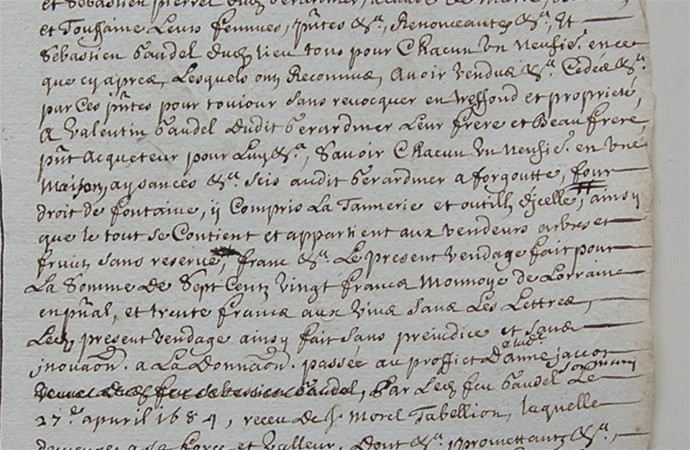 et Toussaine Leurs femmes, pñtes &a, Renonceantes &a, Et
Sebastien Gaudel dud lieu tous pour Chacun Un Neufie. en ce
que cy aprez, Lesquels ont Reconnus, Avoir Vendus &a Cedez &a
par Ces pñtes pour toujour sans revocquer en treffond et proprieté,
A Valentin Gaudel dudit Gerardmer Leur frere et Beaufrere,
pñt Acqueteur pour Luy &a, Sçavoir Chacun Un Neufie. en Une
Maison, aysances &a. Seis audit Gerardmer a forgoutte, four
droit de fontaine, ÿ Compris La Tannerie et outilh d'jcelle, ainsy
que le tout se Contient et appartient aux vendeurs arbres et
fruitz sans reserve, franc &a. Le present vendage fait pour
La Somme de Sept Centz Vingt francz Monnoye de Lorraine
en pñal, et trente francz aux Vins sans Les Lettres,
Led present vendage ainsy fait sans prejudice et sans
jnovaon. a La Donnaon. passée au proffict D'anne jaccot
Par Led feu Gaudel Le
27e. apvril 1684, receu de J. Morel Tabellion, laquelle
demeure a sa force et Valleur, Dont &a. Promettantz &a,